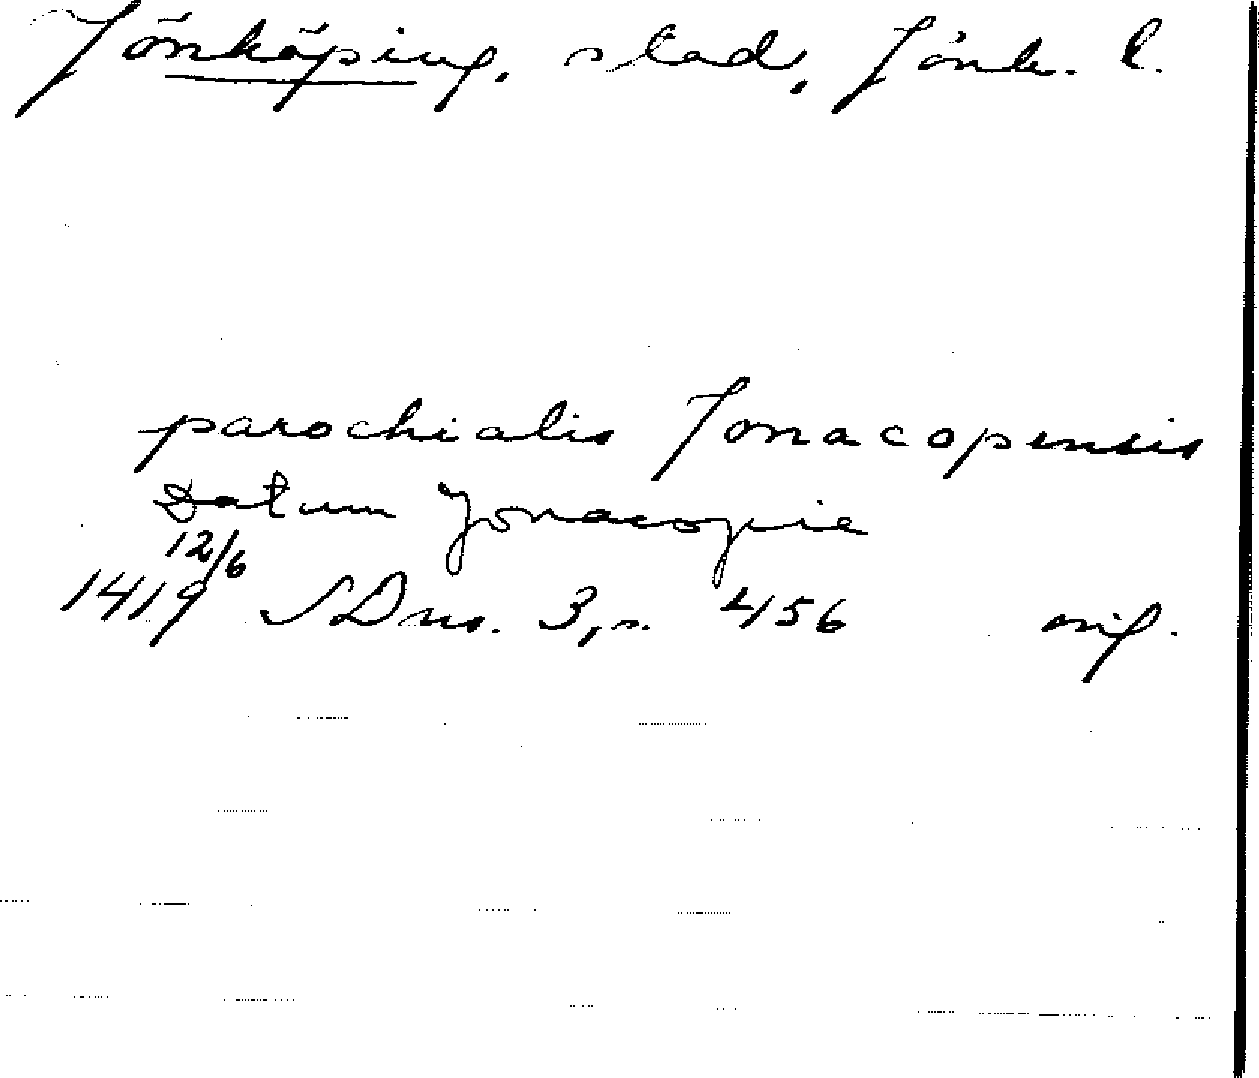 Jönköping, stad, Jönk. l.
parochialis Jonacopensis
Datum Jonacopie
12/6
1419 SDns. 3, s. 456 orig.